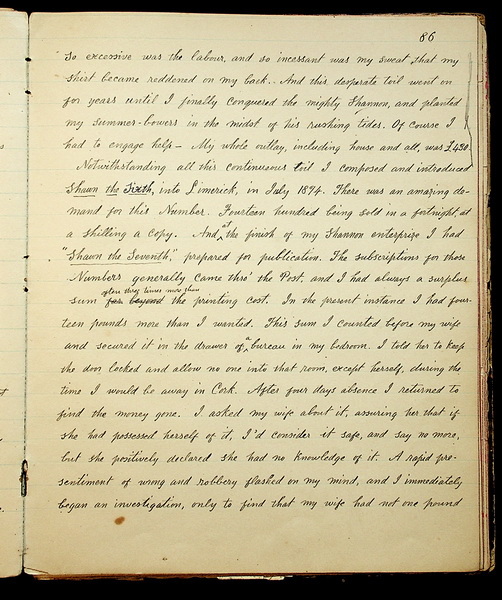 86
So excessive was the labour, and so incessant was my sweat that my
shirt became reddened on my back.. And this desperate toil went on
for years until I finally conquered the mighty Shannon, and planted
my summer-bowers in the midst of his rushing tides. Of course I
had to engage help - My whole outlay, including house and all, was £450.
Notwithstanding all this continuous toil I composed and introduced
Shawn the Sixth, into Limerick, in July 1874. There was an amazing de-
mand for this Number. Fourteen hundred being sold in a fortnight, at
a shilling a copy. And, at the finish of my Shannon enterprize I had
"Shawn the Seventh", prepared for publication. The subscriptions for those
Numbers generally came thro' the Post, and I had always a surplus
often three times more than
sum far beyond the printing cost. In the present instance I had four-
teen pounds more than I wanted. This sum I counted before my wife
and secured it in the drawer of a bureau in my bedroom. I told her to keep
the door locked and allow no one into that room, except herself, during the
time I would be away in Cork. After four days absence I returned to
find the money gone. I asked my wife about it, assuring her that if
she had possessed herself of it, I'd consider it safe, and say no more,
but she positively declared she had no knowledge of it. A rapid pre-
sentiment of wrong and robbery flashed on my mind, and I immediately
began an investigation, only to find that my wife had not one pound